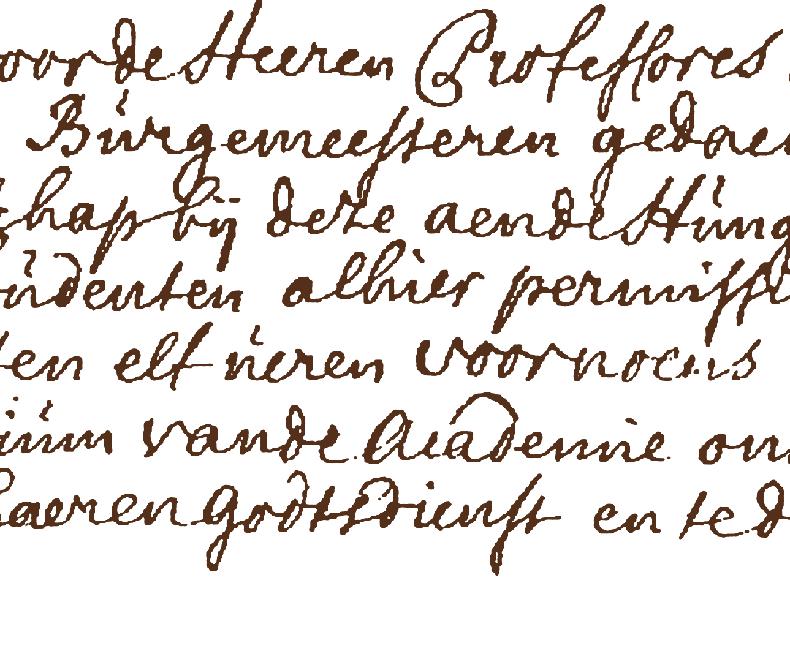 oor de Heeren Professores
Burgemeesteren gedaen
schap bij deze aen de Hung
udenten alhier permissi
ten elf ueren voornoens
ium vande Academie om
haeren godtsdienst en te d